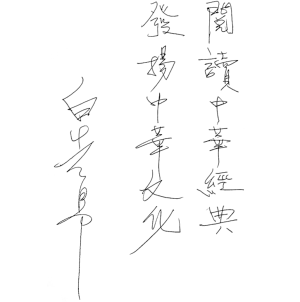 閱讀中華經典
發揚中華文化